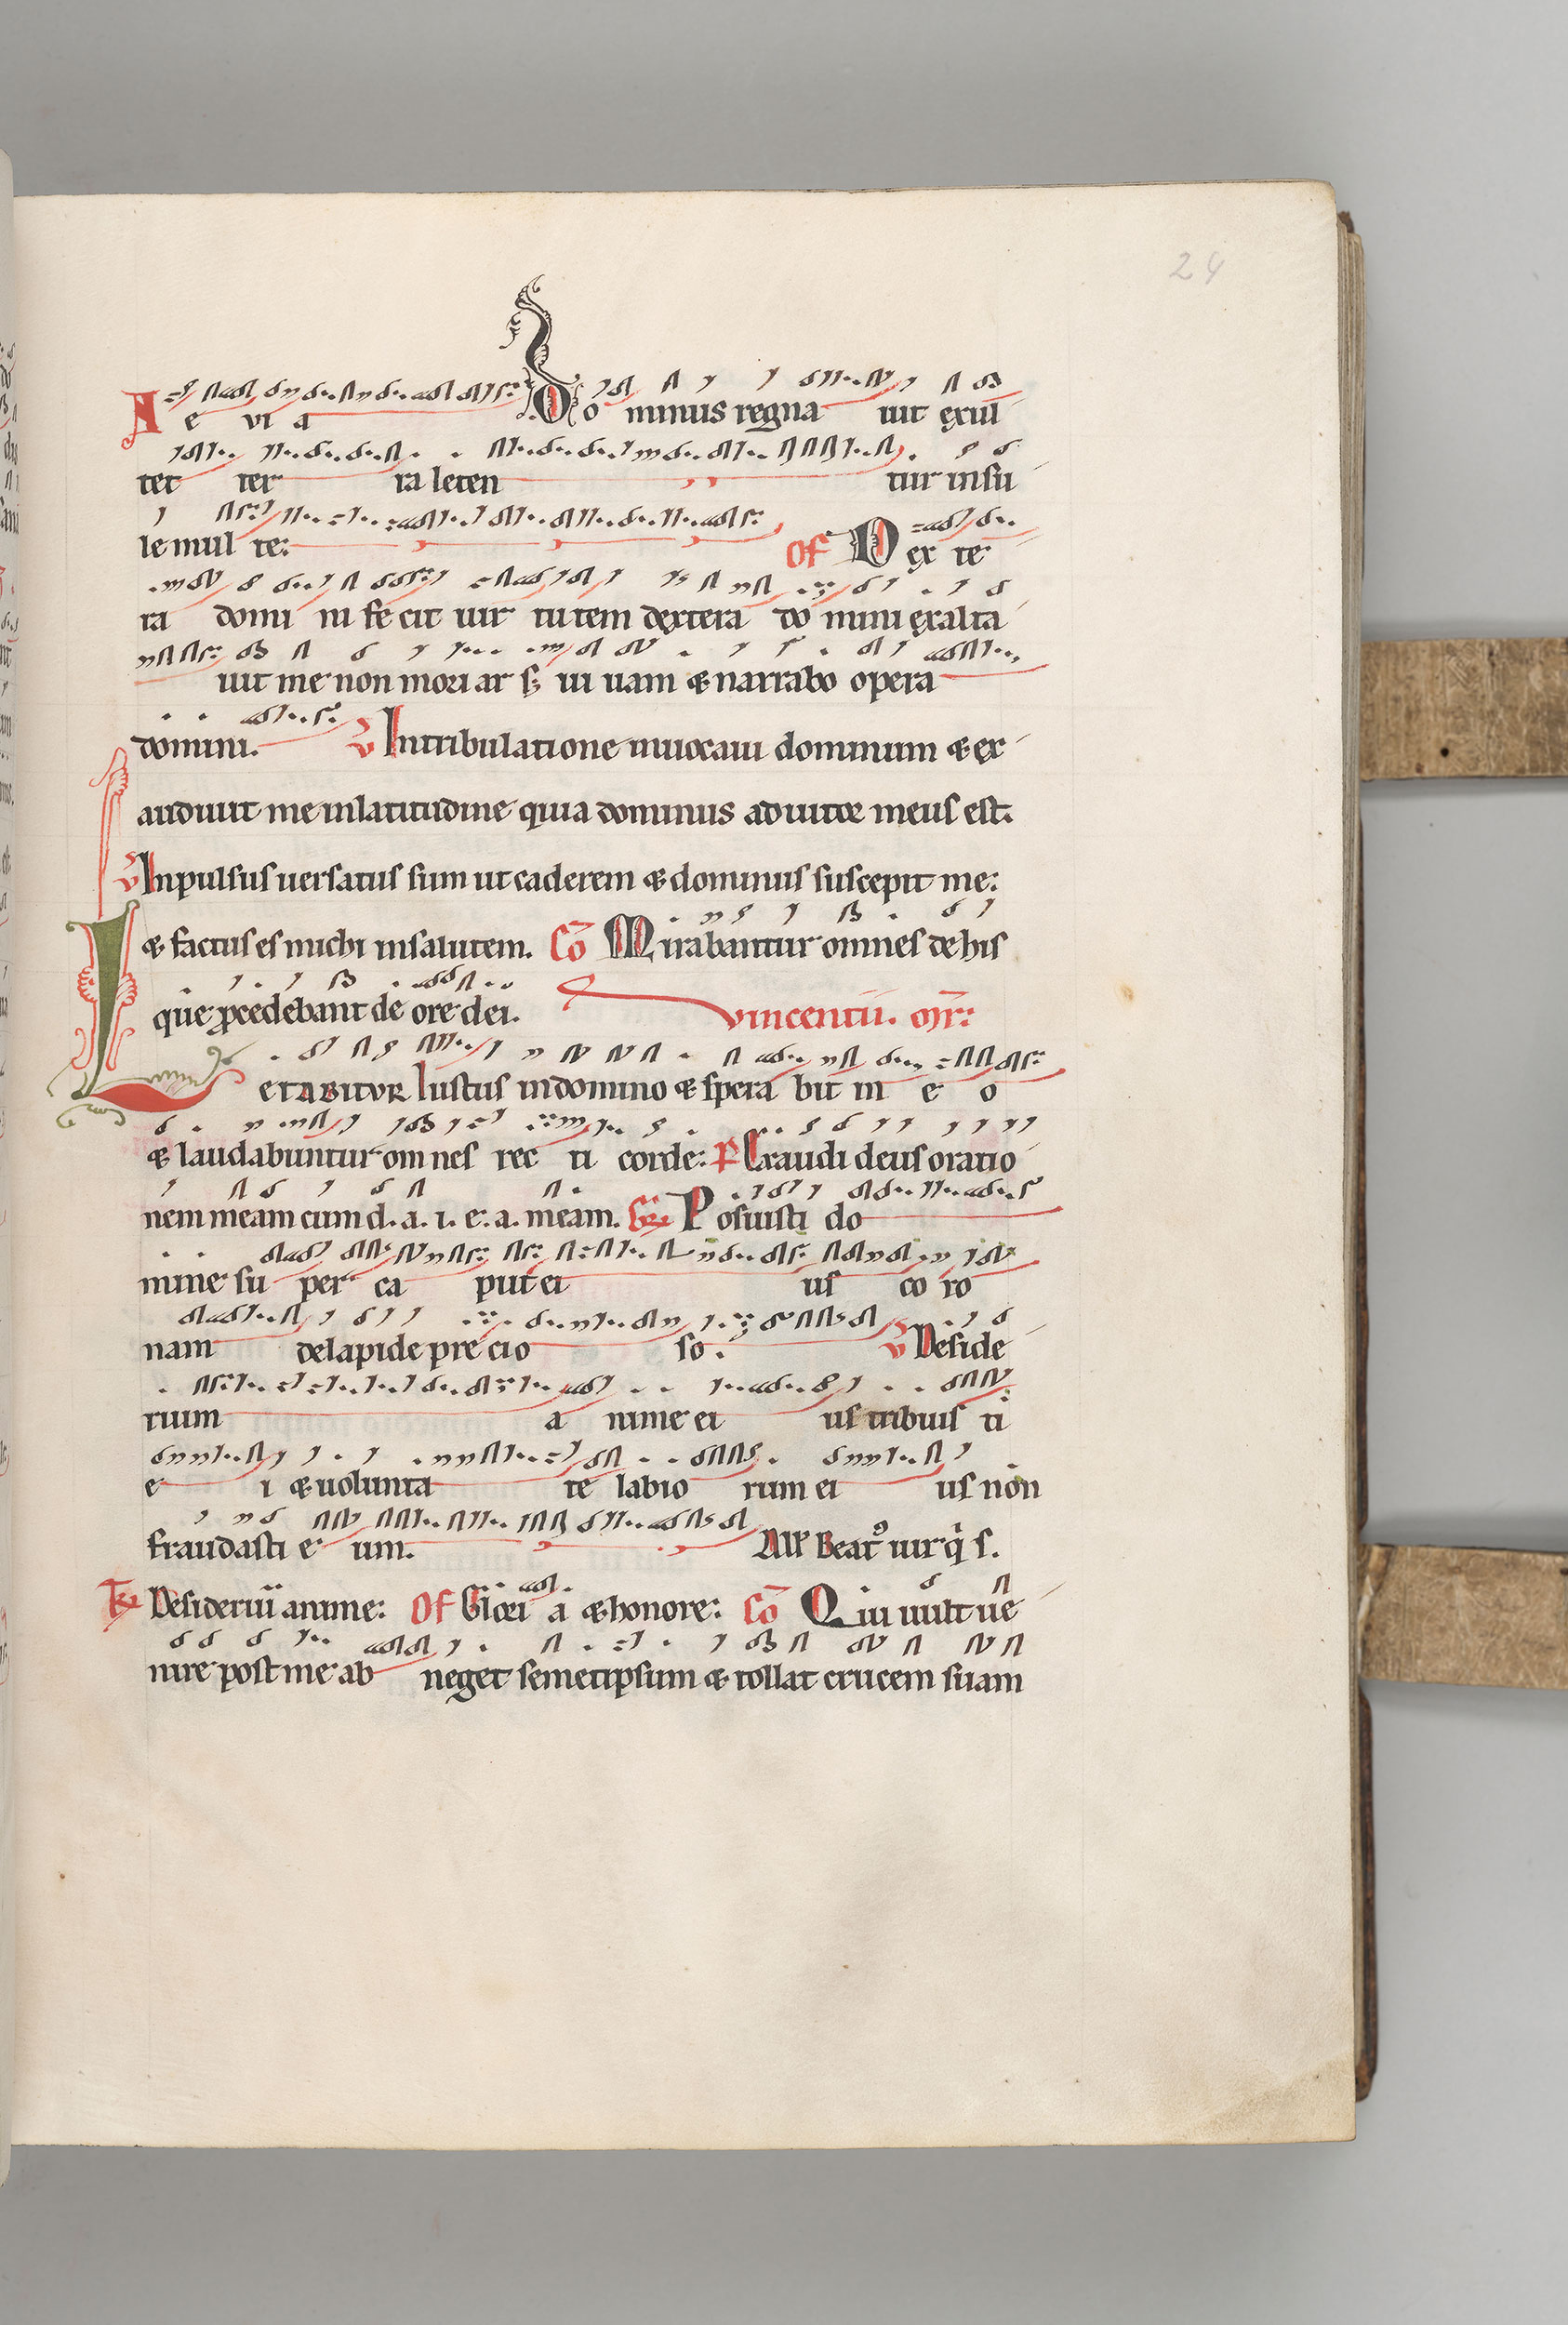 24
A e vi a Do minus regna uit exul
tet ter ra leten tur insu
le mul te: Of Dex te
ra domi ni fe cit uir tutem dextera do mini exalta
uit me non mori ar s; ui uam & narrabo opera
domini. V Intribulatione inuocaui dominum & ex
audiuit me inlatitudine quia dominus adiutor meus est.
V Inpulsus uersatus sum ut caderem & dominus suscepit me:
& factus es michi insalutem. Cō Mirabantur omnes de his
que procedebant de ore dei. vincentii. mr̄:
LETABITVR Iustus indomino & spera bit in e o
& laudabuntur omnes rec ti corde: P Exaudi deus oratio
nem meam cum d. a. i. e. a. meam. Gr Posuisti do
mine su per ca put ei us co ro
nam delapide precio so. V Deside
rium a nime ei us tribuis ti
e i & uolunta te labio rum ei us non
fraudasti e um. All Beat9 uir q̇ s.
Tr Desideriū anime: Of Glori a & honore: Cō Qui uult ue
nire post me ab neget semetipsum & tollat crucem suam